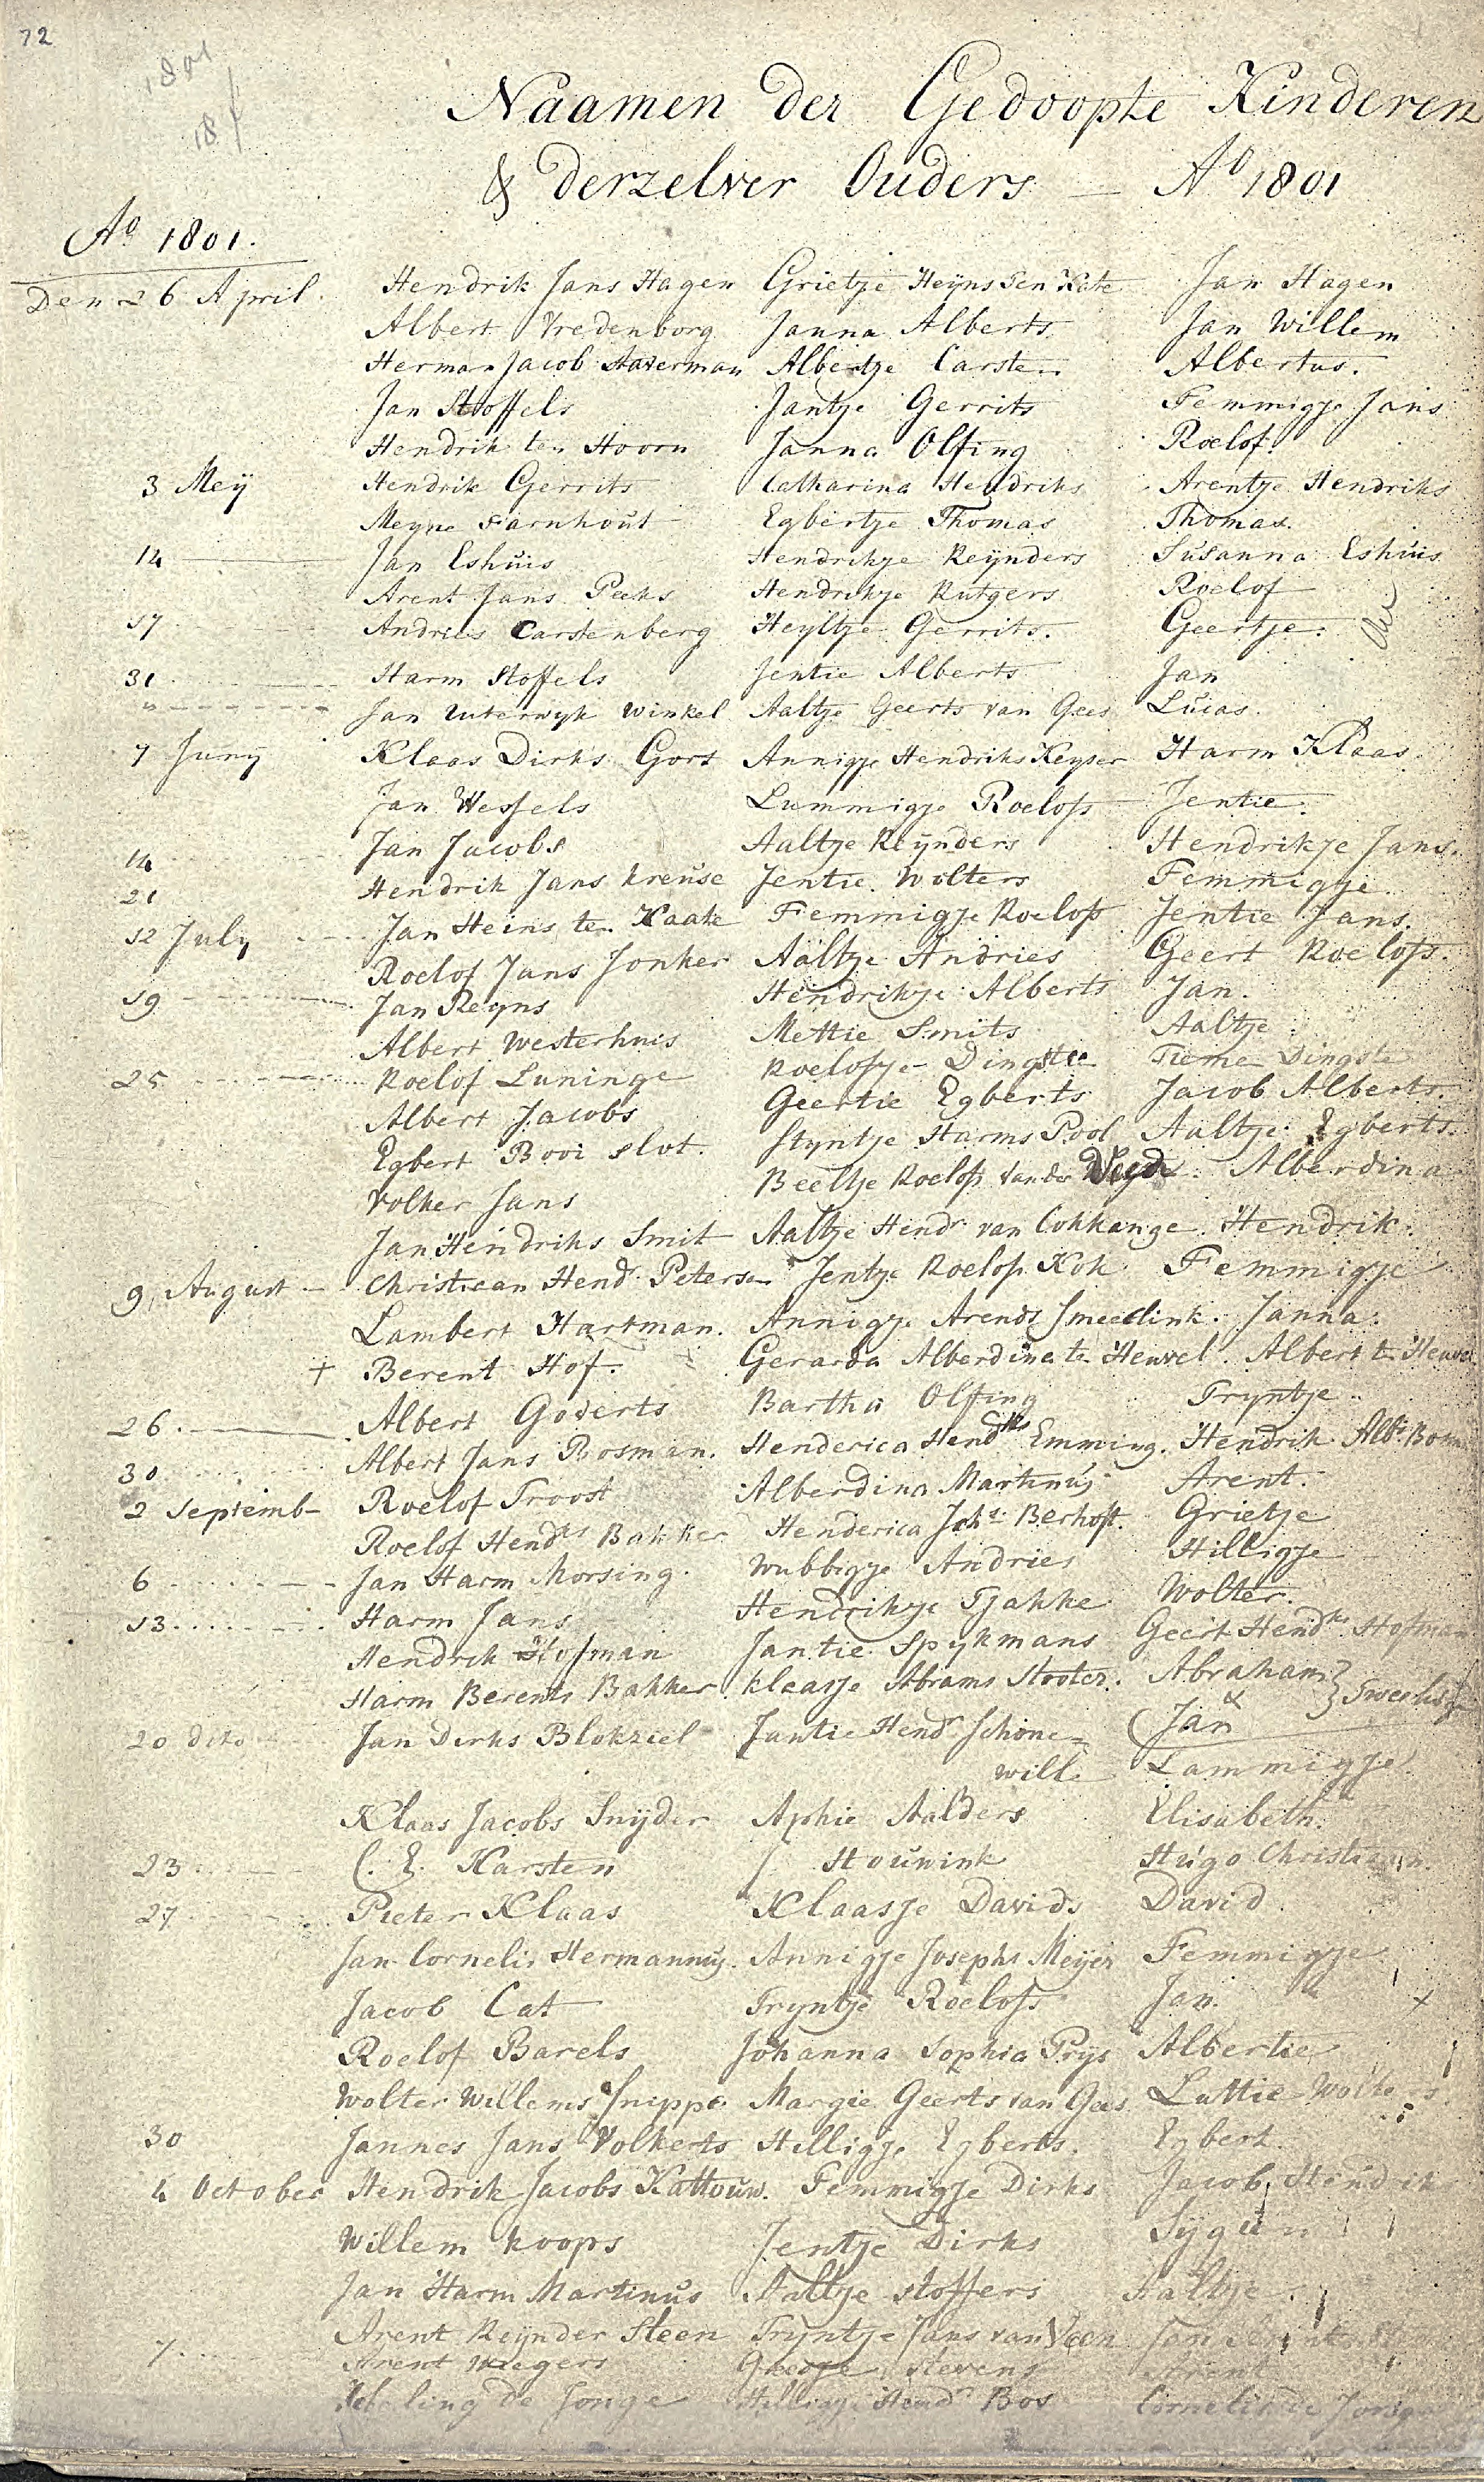 72
1801
18
Naamen der Gedoopte Kinderen
& derzelver Ouders — Ao 1801
Ao 1801.
Den 26 April. Hendrik Jans Hagen Grietje Heijns ten Kate Jan Hagen
Albert Vredenborg Janna Alberts Jan Willem
Herman Jacob Staverman Albertje Carsten Albertus.
Jan Stoffels Jantje Gerrits Femmigje Jans
Hendrik ten Hoorn Janna Olfing Roelof.
3 Meij Hendrik Gerrits Catharina Hendriks Arentje Hendriks
Meyne Farnhout Egbertje Thomas Thomas.
14 Jan Eshuis Hendrikje Reijnders Susanna Eshuis
Arent Jans Peeks Hendrikje Rutgers Roelof
17 Andries Carstenberg Heyltje Gerrits. Geertje.
31 Harm Stoffels Jentie Alberts Jan
" Jan Uiterwyk Winkel Aaltje Geerts van Gees Lucas.
7 Junij Klaas Dirks Gort Annigje Hendriks Keyser Harm Klaas
Jan Wessels Lummigje Roelofs Jentie.
Jan Jacobs Aaltje Reijnders Hendrikje Jans.
14 Hendrik Jans Kreuse Jentie Wolters Femmigje
21
12 July Jan Heins ten Kaate Femmigje Roelofs Jentie Jans.
Roelof Jans Jonker Aaltje Andries Geert Roelofs.
19 Jan Reyns Hendrikje Alberts Jan.
Albert Westerhuis Mettie Smits Aaltje
25 Roelof Luninge Roelofje Dingste Tieme Dingste
Albert Jacobs Geertie Egberts Jacob Alberts.
Egbert Booi Slot. Styntje Harms Pool Aaltje Egberts.
Volker Jans Beeltje Roelofs van der Alberdina
Jan Hendriks Smit Aaltje Hendr van Cokkange Hendrik.
9 August Christiaan Hend Petersen Jentje Roelofs Kok Femmigje
Lambert Hartman. Annigje Arends Smeedink. Janna.
+ Berent Hof. Gerarda Alberdina te Heuvel. Albert te Heuvel
26. Albert Goverts Bartha Olfing Tryntje
Albert Jans Bosman. Henderica Hendks Emming. Hendrik Albt Bosm
30
2 Septemb Roelof Troost Alberdina Martinus Arent.
Roelof Hendks Bakker Henderica Johs Berhoft. Grietje
6 Jan Harm Morsing. Wubbigje Andries Hilligje
13 Harm Jans Hendrikje Tjakke Wolter.
Hendrik Hofman Jantie Spykmans Geert Hendks Hofman
Harm Berents Bakker. Klaasje Abrams Slooter. Abraham } Tweeling
& Jan
20 dito Jan Derks Blokziel Jantie Hendr Schone=
will. Lammigje
Klaas Jacobs Snijder Aphie Aalders Elisabeth.
23 C. E. Karsten Stouwink Hugo Christiaan.
27 Pieter Klaas Klaasje Davids David
Jan Cornelis Hermannus. Annigje Josephs Meijer Femmigje
Jacob Cat Tryntje Roelofs Jan. +
Roelof Barels Johanna Sophia Prys Albertie
Wolter Willems Snippe Margie Geerts van Gees Luttie Wolters
30 Jannes Jans Volkerts Hilligje Egberts. Egbert.
4 October Hendrik Jacobs Kattouw. Femmigje Dirks Jacob Hendrik
Willem Koops Jentje Dirks
Jan Harm Martinus Aaltje Stoffers Aaltje.
Arent Reijnder Steen Tryntje Jans van Veen Jan Arents
7 Arent Wregers Stevens Arent
de Jonge Hilligje Hendr Bos Cornelis de Jonge